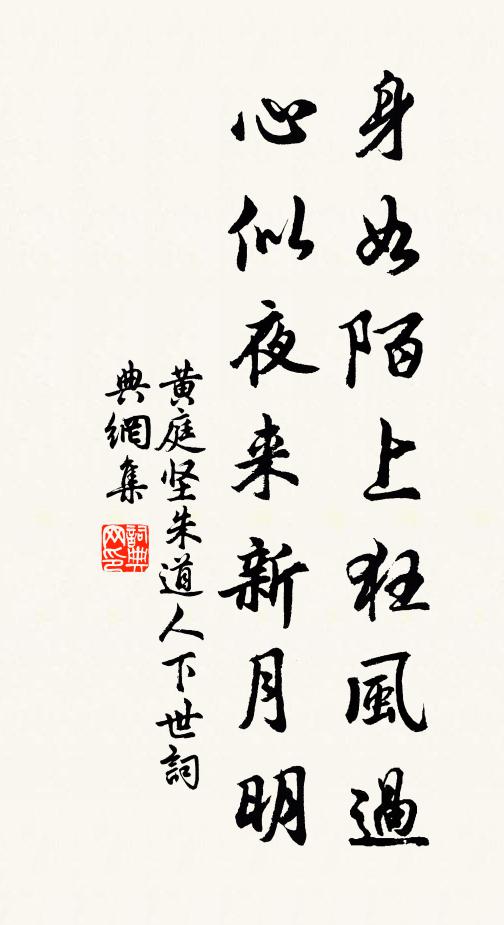 身如陌上狂風過
心似夜来新月明
黄庭坚朱道人下世詞
典網集
詞典
网印